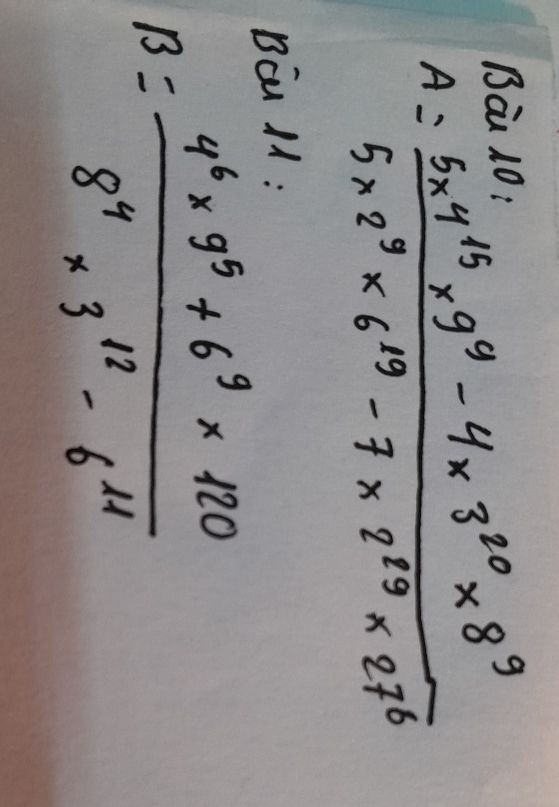 Bài 10:
A = 5x4¹⁵ x 9⁹ - 4 x 3²⁰ x 8⁹
5 x 2⁹ x 6¹⁹ - 7 x 2²⁹ x 27⁶
Bài 11:
4⁶ x 9⁵ + 6⁹ x 120
B =
8⁴ x 3¹² - 6¹¹